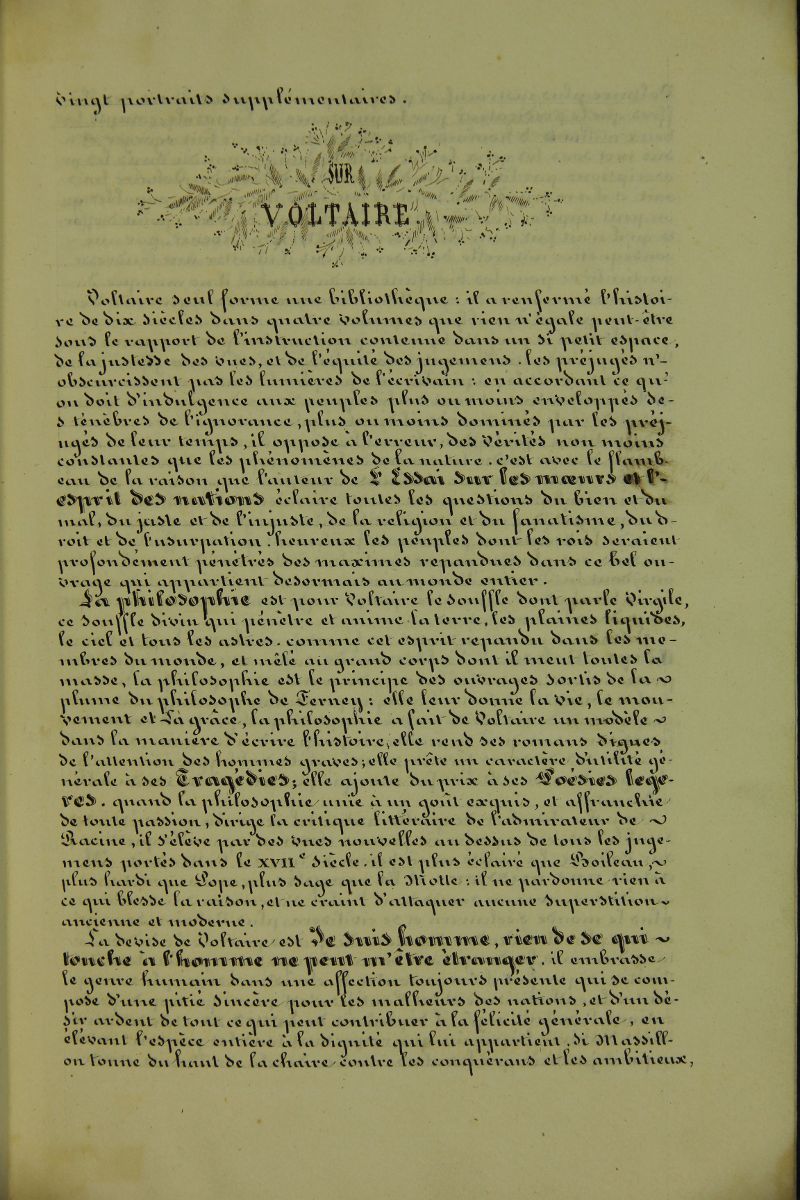 Vingt portraits supplémentaires.
SUR
VOLTAIRE.
Voltaire seul forme une bibliothèque : il a renfermé l'histoi-
re de dix siècles dans quatre volumes que rien n'égale peut-être
sous le rapport de l'instruction contenue dans un si petit espace,
de la justesse des vues, et de l'équité des jugemens. les préjugés n'-
obscurcissent pas les lumières de l'écrivain : en accordant ce qu'-
on doit d'indulgence aux peuples plus ou moins enveloppés de-
s ténèbres de l'ignorance, plus ou moins dominés par les préj-
ugés de leur temps, il oppose à l'erreur, des vérités non moins
constantes que les phénomènes de la nature. c'est avec le flamb-
eau de la raison que l'auteur de l'Essai sur les mœurs et l'-
esprit des nations éclaire toutes les questions du bien et du
mal, du juste et de l'injuste, de la religion et du fanatisme, du d-
roit et de l'usurpation. heureux les peuples dont les rois seraient
profondément pénétrés des maximes repandues dans ce bel ou-
vrage qui appartient desormais au monde entier.
La philosophie est pour Voltaire le souffle dont parle Virgile,
ce souffle divin qui pénètre et anime la terre, les plaines liquides,
le ciel et tous les astres. comme cet esprit repandu dans les me-
mbres du monde, et mêlé au grand corps dont il meut toutes la
masse, la philosophie est le principe des ouvrages sortis de la
plume du philosophe de Ferney : elle leur donne la vie, le mou-
vement et la grâce, la philosophie a fait de Voltaire un modèle
dans la manière d'écrire l'histoire; elle rend ses romans dignes
de l'attention des hommes graves; elle prête un caractère d'utilité gé-
nérale à ses Tragédies; elle ajoute du prix à ses Poésies legè-
res. quand la philosophie unie à un goût exquis, et affranchie
de toute passion, dirige la critique littéraire de l'admirateur de
Racine, il s'élève par des vues nouvelles au dessus de tous les juge-
mens portés dans le XVIIe siècle. il est plus éclairé que Boileau,
plus hardi que Pope, plus sage que la Motte : il ne pardonne rien à
ce qui blesse la raison, et ne craint d'attaquer aucune superstition
ancienne et moderne.
La devise de Voltaire est Je suis homme, rien de ce qui
touche à l'homme ne peut m'être étranger. il embrasse
le genre humain dans une affection toujours présente qui se com-
pose d'une pitié sincère pour les malheurs des nations, et d'un dé-
sir ardent de tout ce qui peut contribuer à la félicité générale, en
élevant l'espèce entière à la dignité qui lui appartient. si Massill-
on tonne du haut de la chaire contre les conquérans et les ambitieux,